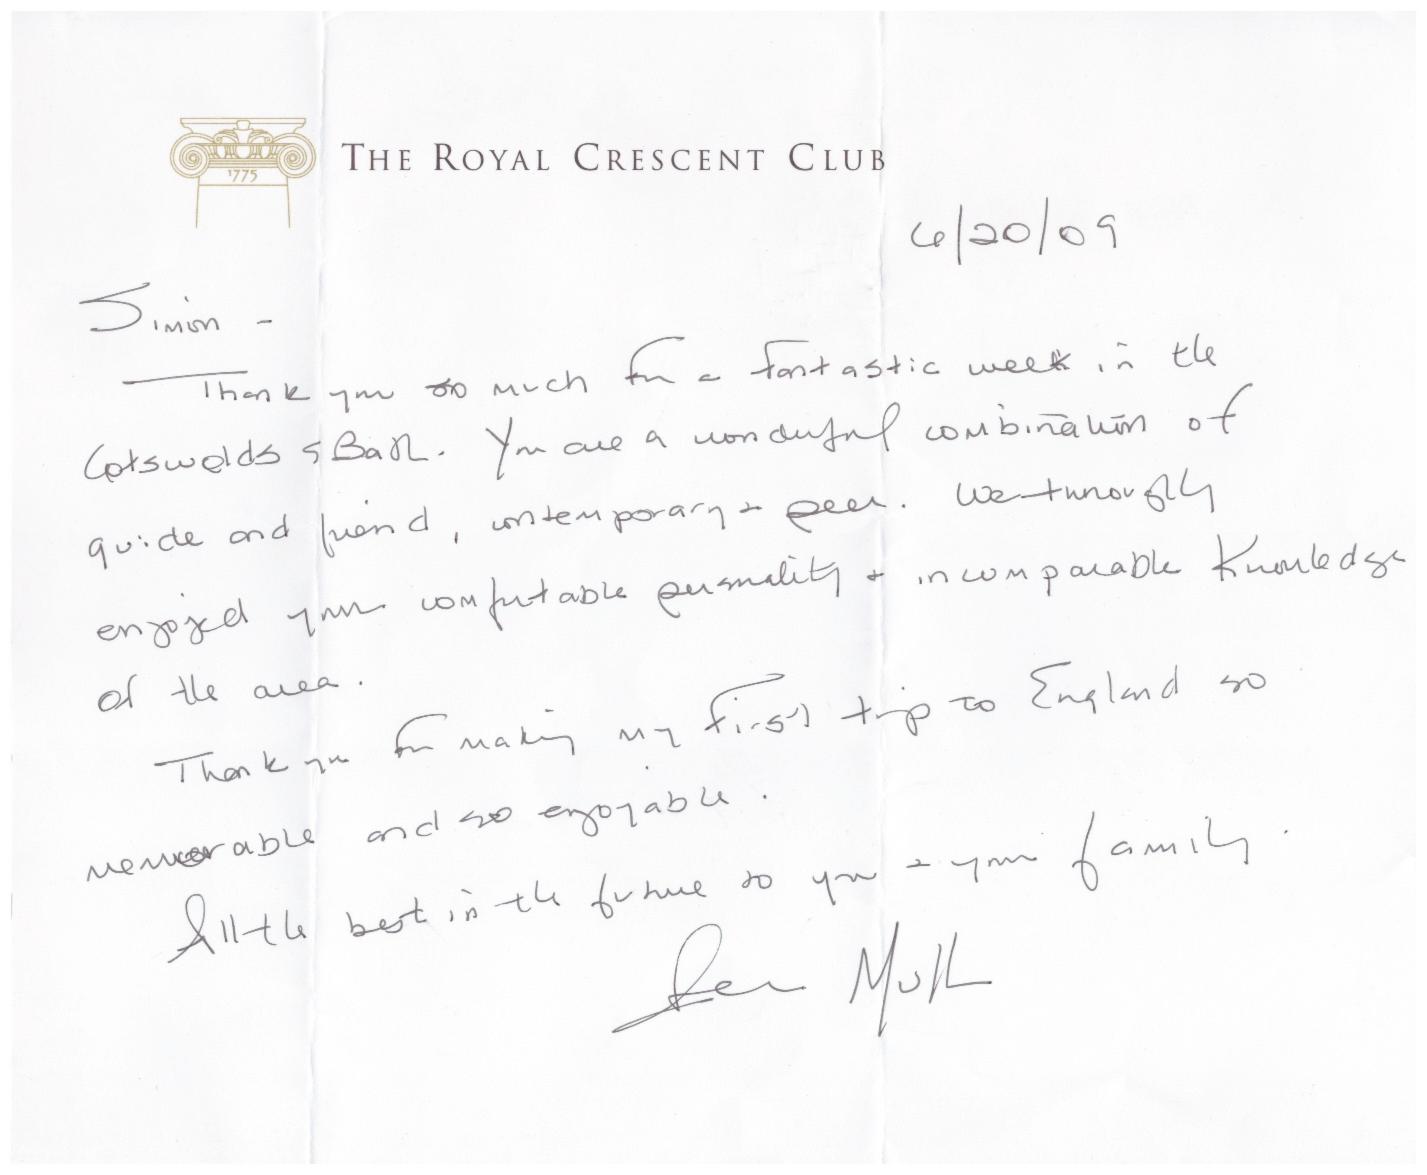 1775
THE ROYAL CRESCENT CLUB
6/20/09
Simon -
Thank you so much for a fantastic week in the
Cotswolds & Bath. You are a wonderful combination of
guide and friend, contemporary + peer. We thoroughly
enjoyed your comfortable personality + incomparable Knowledge
of the area.
Thank you for making my first trip to England so
memorable and so enjoyable.
All the best in the future to you + your family.